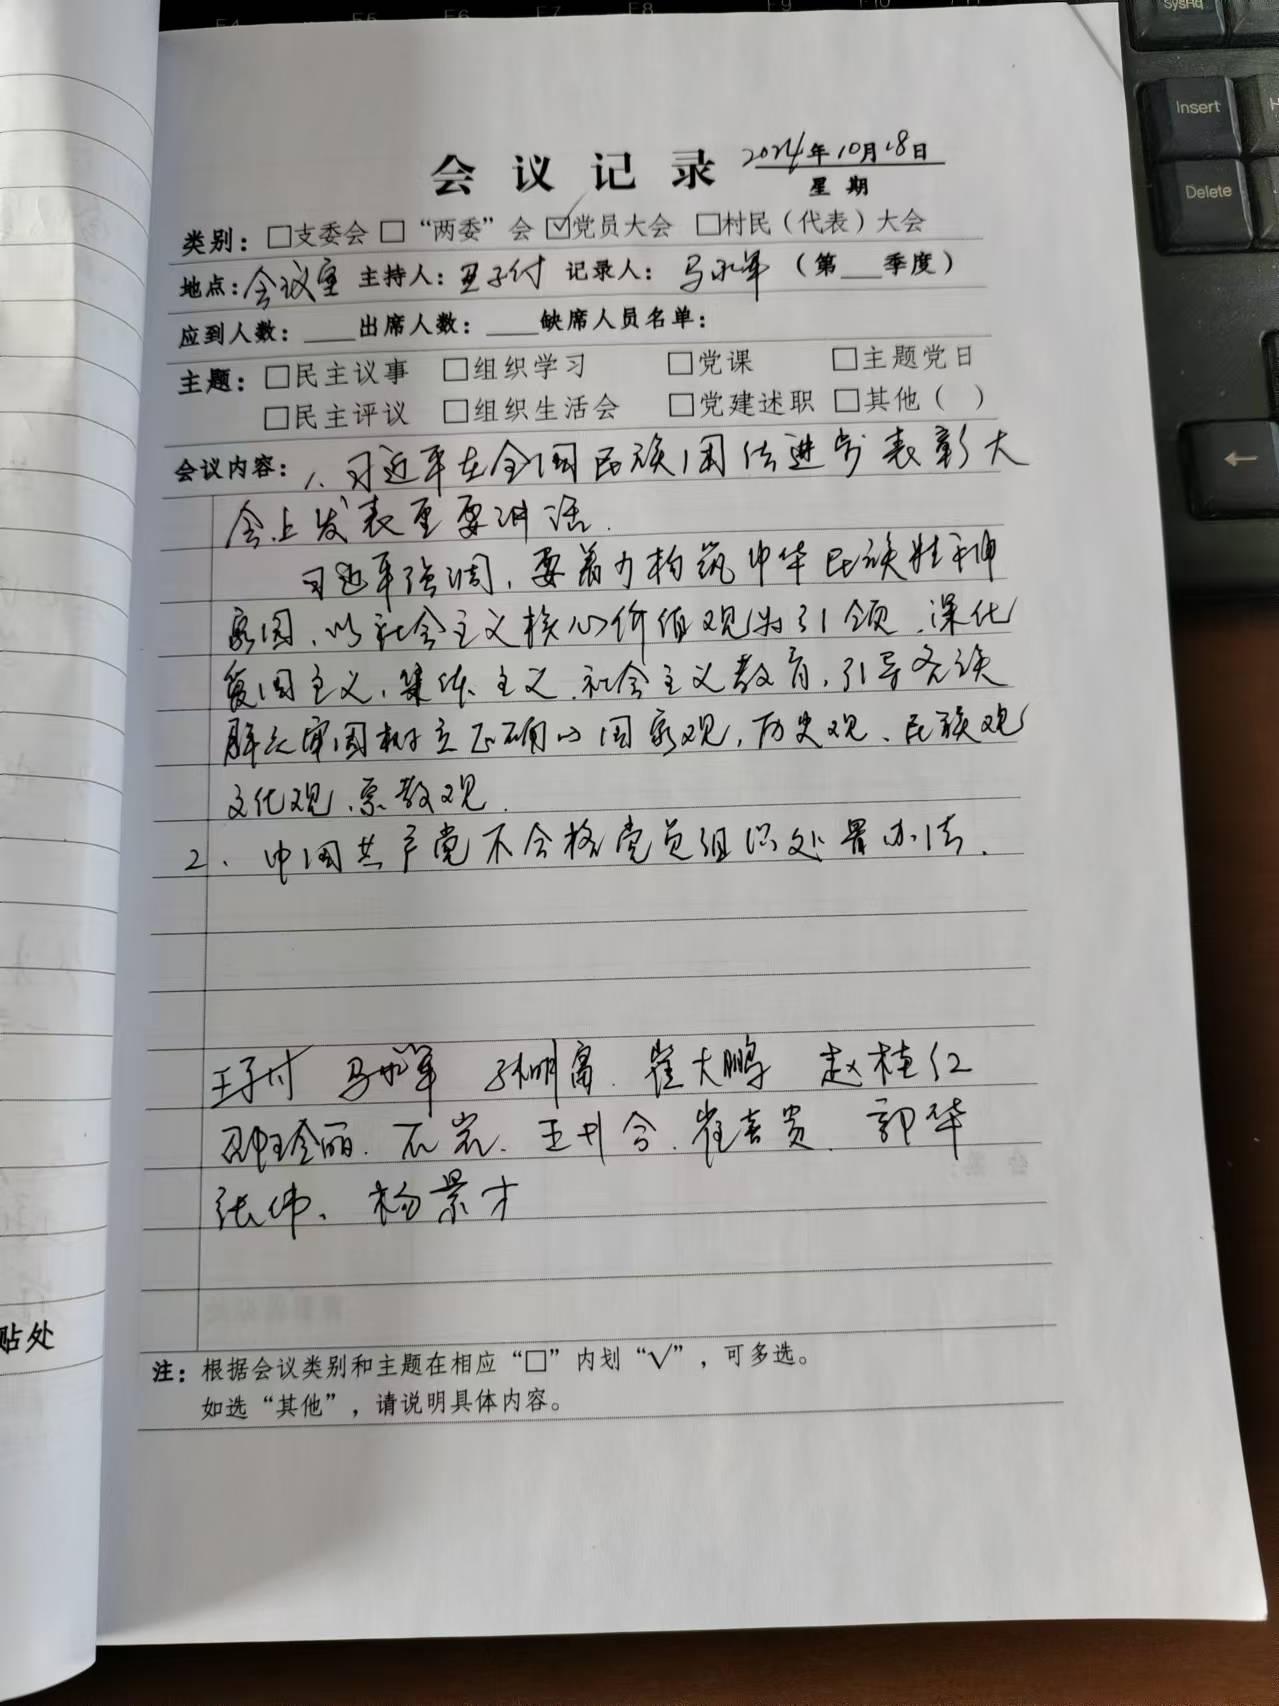 F8
F9
SysRq
Insert
Delete
会议记录 2024年10月18日
星期
类别：□支委会 □“两委”会 ☑党员大会 □村民（代表）大会
地点：会议室 主持人：王子付 记录人：马永军 （第___季度）
应到人数：____出席人数：____缺席人员名单：
主题：□民主议事 □组织学习 □党课 □主题党日
□民主评议 □组织生活会 □党建述职 □其他（ ）
会议内容：1、习近平在全国民族团结进步表彰大
会上发表重要讲话.
习近平强调，要着力构筑中华民族精神
家园，以社会主义核心价值观为引领，深化
爱国主义，集体主义，社会主义教育，引导各族
群众牢固树立正确的国家观，历史观、民族观
文化观、宗教观.
2、中国共产党不合格党员组织处置办法.
王子付 马永军 孙明富. 崔大鹏 赵桂红
玲丽. 石岩. 王 合. 崔喜贵. 郭华
张伟、杨景才
贴处
注：根据会议类别和主题在相应“□”内划“√”，可多选。
如选“其他”，请说明具体内容。